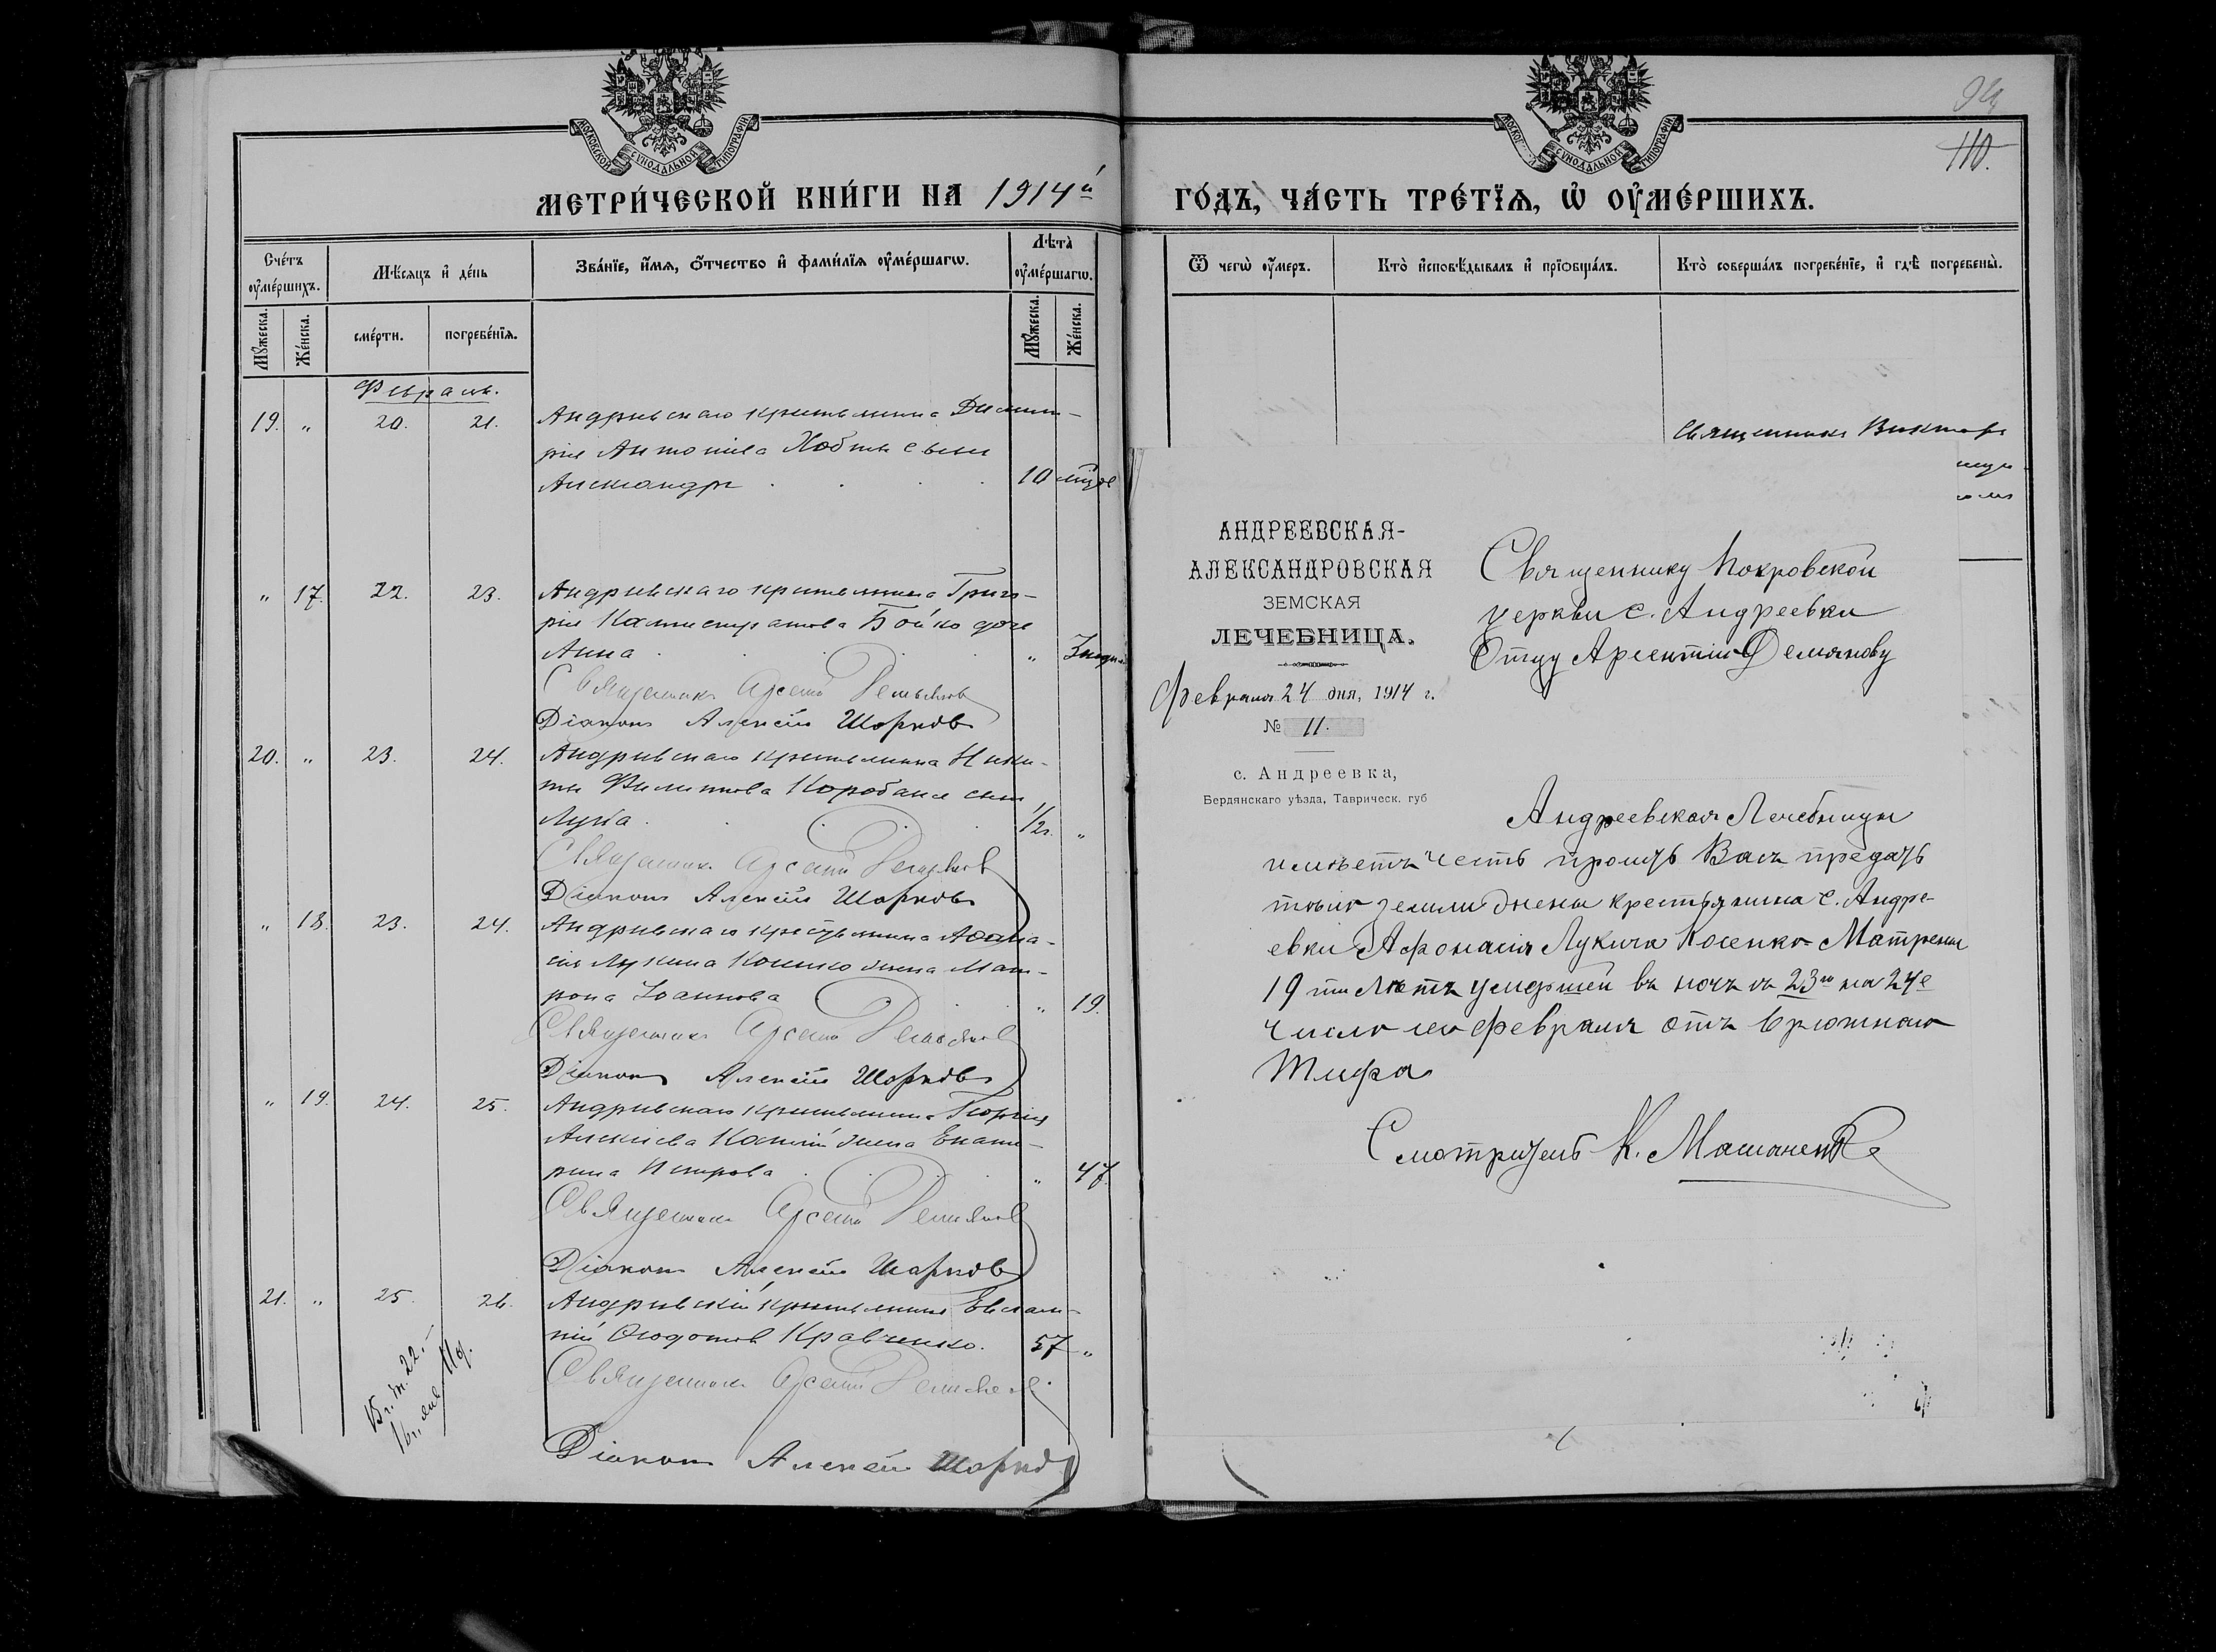 МОСКОВСКОЙ СѴНОДАЛЬНОЙ ТИПОГРАФІИ
МЕТРИ́ЧЕСКОЙ КНИ́ГИ НА 1914й
Сче́тъ ᲂу҆ме́ршихъ.
Мѣ́сяцъ и҆ де́нь
Зва́нїе, и҆́мя, ѻ҆́тчество и҆ фами́лїя ᲂу҆ме́ршагѡ.
Лѣта̀ ᲂу҆ме́ршагѡ.
Мꙋ́жеска.
Же́нска.
сме́рти.
погребе́нїя.
Мꙋ́жеска.
Же́нска.
Февраль.
19. „ 20. 21. Андреевскаго крестьянина Димит-
рія Антонова Хобты сынъ
Александръ 10 мцовъ
„ 17. 22. 23. Андреевскаго крестьянина Григо-
рія Каллистратова Бойко дочь
Анна „
Священникъ Арсеній Демьяновъ
Діаконъ Алексій Шарковъ
20. „ 23. 24. Андреевскаго крестьянина Ники-
ты Филиппова Коробана сынъ
Лука 1/2г. „
Священникъ Арсеній Демьяновъ
Діаконъ Алексій Шарковъ
„ 18. 23. 24. Андреевскаго крестьянина Аѳана-
сія Лукина Косенко жена Мат-
рона Іоаннова „ 19.
Священникъ Арсеній Демьяновъ
Діаконъ Алексій Шарковъ
„ 19. 24. 25. Андреевскаго крестьянина Георгія
Алексіева жена Екате-
рина Петрова „ 47.
Священникъ Арсеній Демьяновъ
Діаконъ Алексій Шарковъ
21. „ 25. 26. Андреевскій крестьянинъ Евлам-
пій Ѳеодотовъ Кравченко. 57 „
Священникъ Арсеній Демьяновъ
Діаконъ Алексій Шарковъ
94
110.
МОСКОВСКОЙ СѴНОДАЛЬНОЙ ТИПОГРАФІИ
ГО́ДЪ, ЧА́СТЬ ТРЕ́ТЇЯ, Ѡ҆ ᲂУ҆МЕ́РШИХЪ.
Ѿ чегѡ̀ ᲂу҆́меръ.
Кто̀ и҆сповѣ́дывалъ и҆ прїѻбща́лъ.
Кто̀ соверша́лъ погребе́нїе, и҆ гдѣ̀ погребены̀.
Священникъ Викторъ
АНДРЕЕВСКАЯ-
АЛЕКСАНДРОВСКАЯ
ЗЕМСКАЯ
ЛЕЧЕБНИЦА.
Февраля 24 дня, 1914 г.
№ 11.
с. Андреевка,
Бердянскаго уѣзда, Таврическ. губ
Священнику Покровской
церкви с. Андреевки
Отцу Арсентію Демянову
Андреевская Лечебница
имѣетъ честь просить Васъ предать
тѣло земли жены крестьянина с. Андре-
евки Афонасія Лукича Косенко Матрены
19 ти лѣтъ умершей въ ночь съ 23го на 24е
число сего февраля отъ брюшнаго
Тифа
Смотритель К.